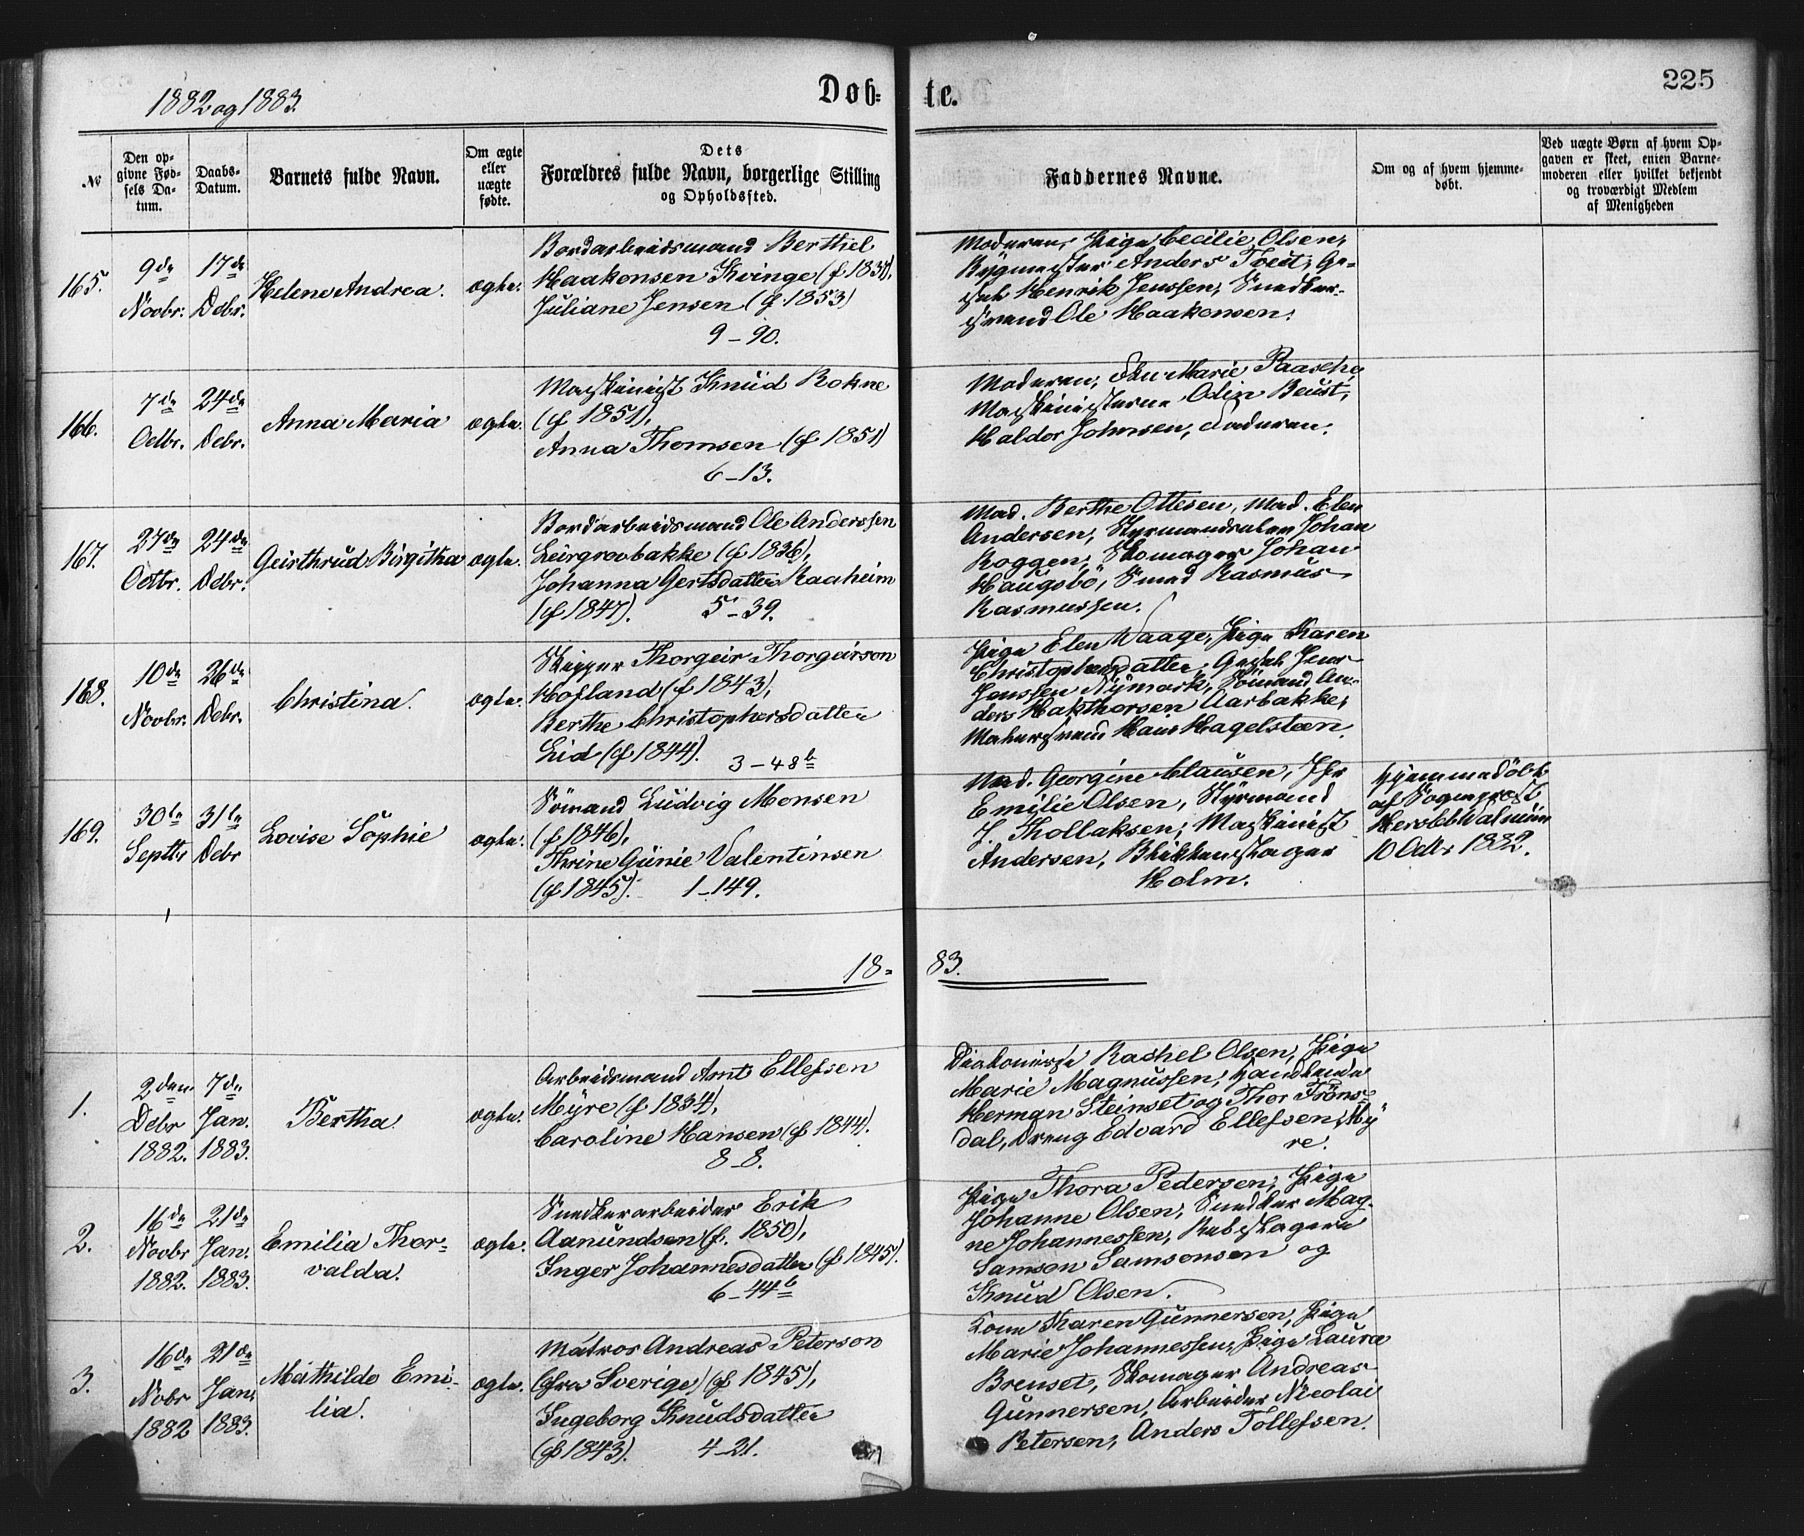 1882 og 1883.
Døb=
te.
225
№
Den op-
givne Fød-
sels Da-
tum.
Daabs-
Datum.
Barnets fulde Navn.
Om ægte
eller
uægte
fødte.
Dets
Forældres fulde Navn, borgerlige Stilling
og Opholdssted.
Faddernes Navne.
Om og af hvem hjemme-
døbt.
Ved uægte Børn af hvem Op-
gaven er skeet, enten Barne-
moderen eller hvilket bekjendt
og troværdigt Medlem
af Menigheden
165.
9de
Novbr:
17de
Debr.
Helene Andrea.
ægte.
Bordarbeidsmand Berthel
Haakonsen Kvinge (f
Juliane Jensen (f. 1853)
9-90.
Moderen, Pige Cecilie Olsen,
Anders Tveit, Ge-
sel Henrik Jenssen, Snedker-
svend Ole Haakensen.
166.
7de
Octbr.
24de
Debr.
Anna Maria
ægte.
Maskinist Knud Rokne
(f 1851),
Anna Thomsen (f 1851)
6-13.
Moderen, Marie Paasche,
Maskinisterne Odin Beust,
Haldor Johnsen, Faderen.
167.
27de
Octbr.
24de
Debr.
Geirthrud Birgitha
ægte.
Bordarbeidsmand Ole Anderssen
Leirgrovbakke (f 1836),
Johanna Gertsdatter Raaheim
(f 1847). 5-39.
Mad. Berthe Ottesen, Mad. Elen
Andersen, Styrmandselev Johan
Roggen, Skomager Johan
Haugsbö, Smed Rasmus
Rasmussen.
168.
10de
Novbr.
26de
Debr.
Christina.
ægte.
Skipper Thorgeir Thorgeirson
Hofland (f 1843),
Berthe Christophersdatter
Lid (f 1844). 3-48b
Pige Elen Waage, Pige Karen
Christophersdatter, Gesel Jens
Jenssen Nymark, Sömand An-
ders Hakthorsen Aarbakke,
Malersvend Hans Hagelsteen.
169.
30te
Septbr
31te
Debr
Lovise Sophie
ægte.
Sömand Ludvig Monsen
(f 1846),
Thrine Gunie Valentinsen
(f 1845). 1-149.
Mad. Georgine Clausen, Jfr
Emilie Olsen, Styrmand
J. Thollaksen, Maskinist
Andersen, Blikkenslager
Holm.
Hjemmedöbt
af Sogneprest
Hersleb Walnum
10 Octbr 1882.
18=
83.
1.
2den
Debr
1882.
7de
Jan.
1883.
Bertha.
ægte.
Arbeidsmand Arnt Ellefsen
Myre (f 1834),
Caroline Hansen (f 1844.
8-8.
Diakonisse Rachel Olsen, Pige
Marie Magnussen,
Herman Steinset og Thor Tröns-
dal, Dreng Edvard Ellefsen My
re.
2.
16de
Novbr
1882.
21de
Jan.
1883.
Emilia Thor-
valda.
ægte.
Snedkerarbeider Erik
Aanundsen (f. 1850),
Inger Johannesdatter (f 1845).
6-44b
Pige Thora Pedersen, Pige
Johanne Olsen, Snedker Mag-
ne Johannessen, Rebslagerne
Samson Samsonsen og
Knud Olsen.
3.
16de
Nobr
1882
21de
Jan.
1883.
Mathilde Emi-
lia.
ægte.
Matros Andreas Peterson
(fra Sverige) (f 1845),
Ingeborg Knudsdatter
(f 1843). 4-21.
Kone Karen Gunnersen, Pige
Marie Johannessen, Pige Laura
Brenset, Skomager Andreas
Gunnersen, Arbeider Nicolai
Petersen, Anders Tollefsen.